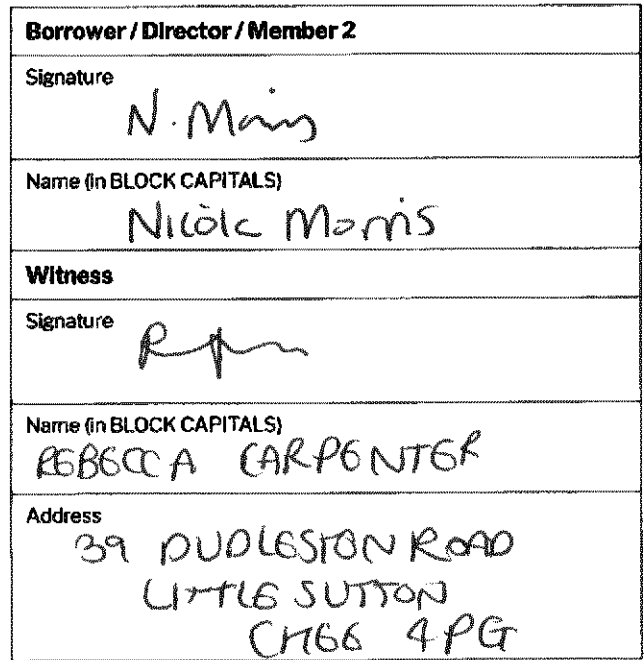 Borrower / Director / Member 2
Signature
N. Morris
Name (in BLOCK CAPITALS)
Nicole Morris
Witness
Signature
Name (in BLOCK CAPITALS)
REBECCA CARPENTER
Address
39 DUDLESTON ROAD
LITTLE SUTTON
CH66 4PG